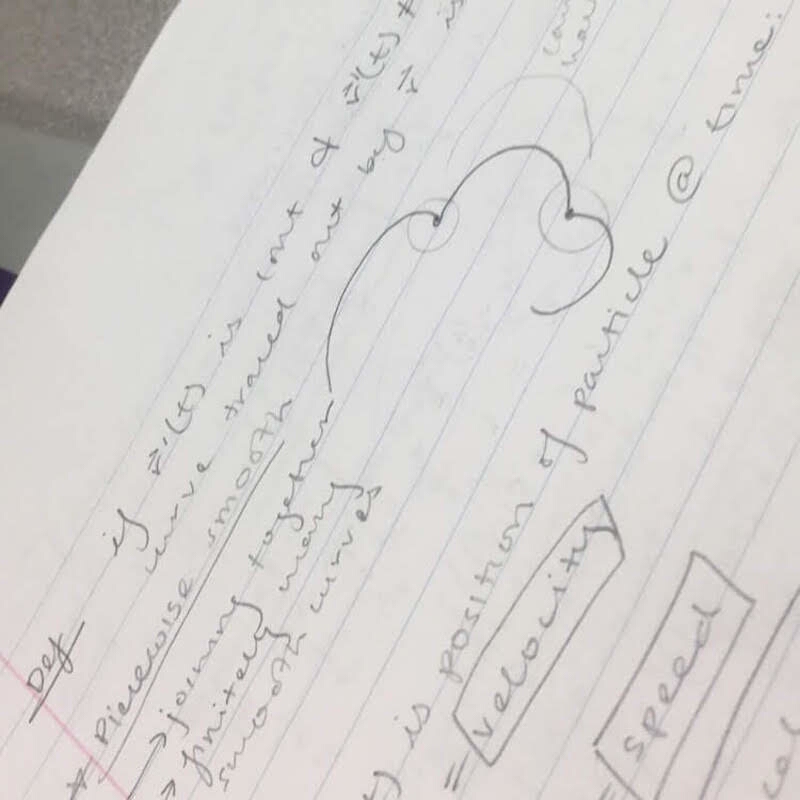 Def if r⃗'(t) is cont & r⃗'(t) ≠
curve traced out by r⃗ is
* Piecewise smooth
→ joining together
→ finitely many
smooth curves
t) is position of particle @ time:
= velocity
= speed